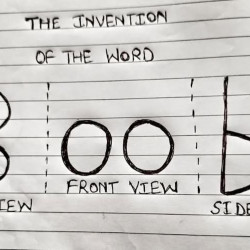 THE INVENTION
OF THE WORD
oo
FRONT VIEW
IEW
SIDE